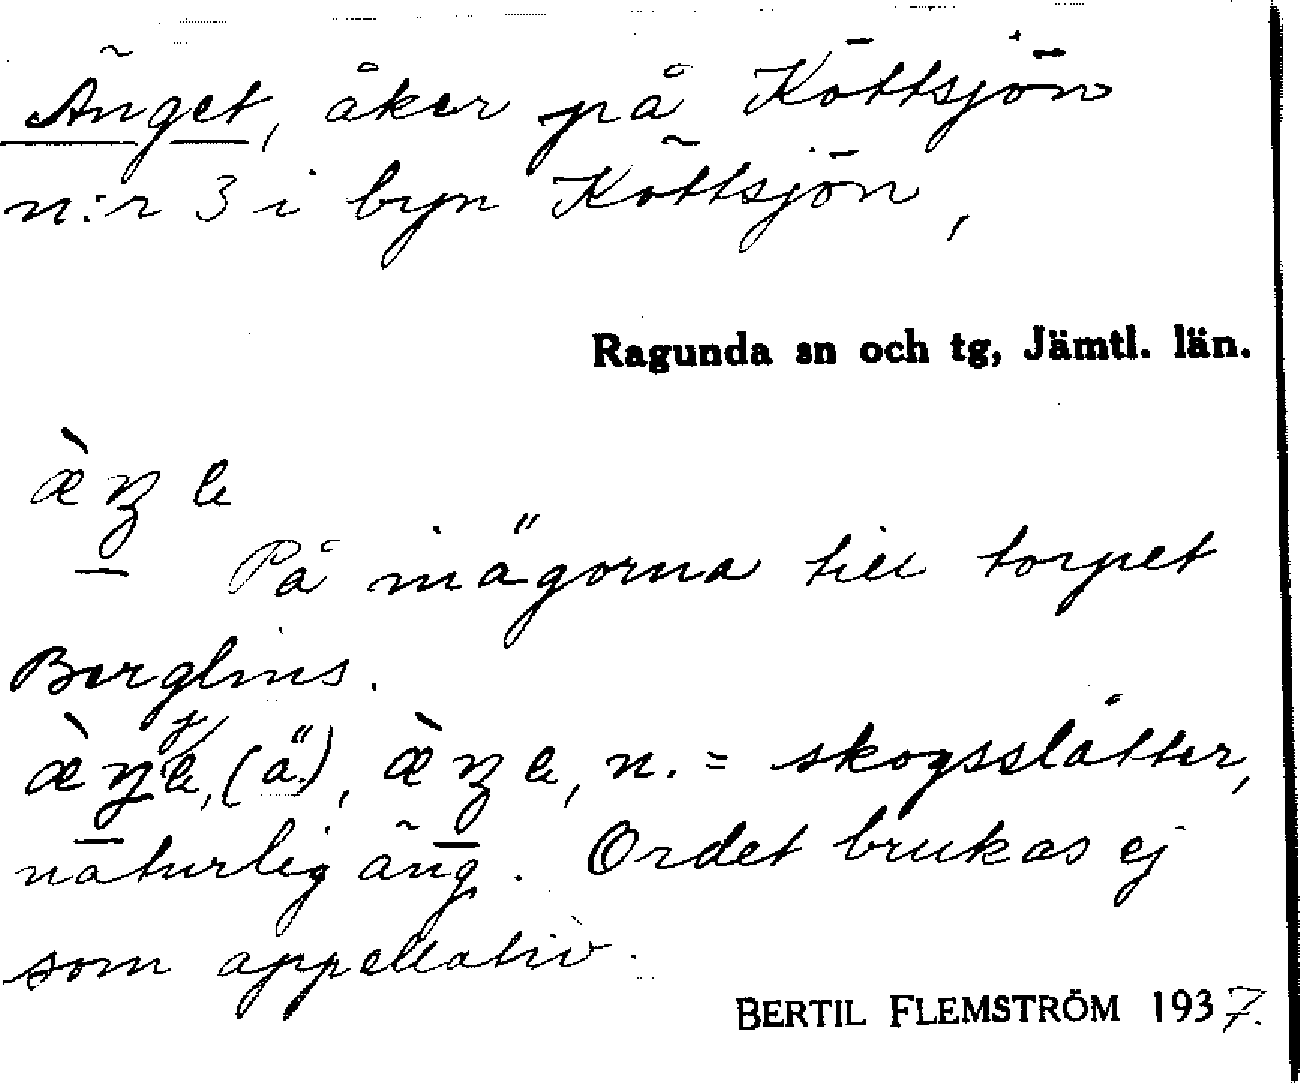 Änget, åker på Köttsjön
n:r 3 i byn Köttsjön,
Ragunda sn och tg, Jämtl. län.
æ̀ŋe
På inägorna till torpet
Berglins.
æ̀ŋe, (ä), æ̀ŋe, n. = skogsslåtter,
naturlig äng. Ordet brukas ej
som appellativ.
BERTIL FLEMSTRÖM 1937.